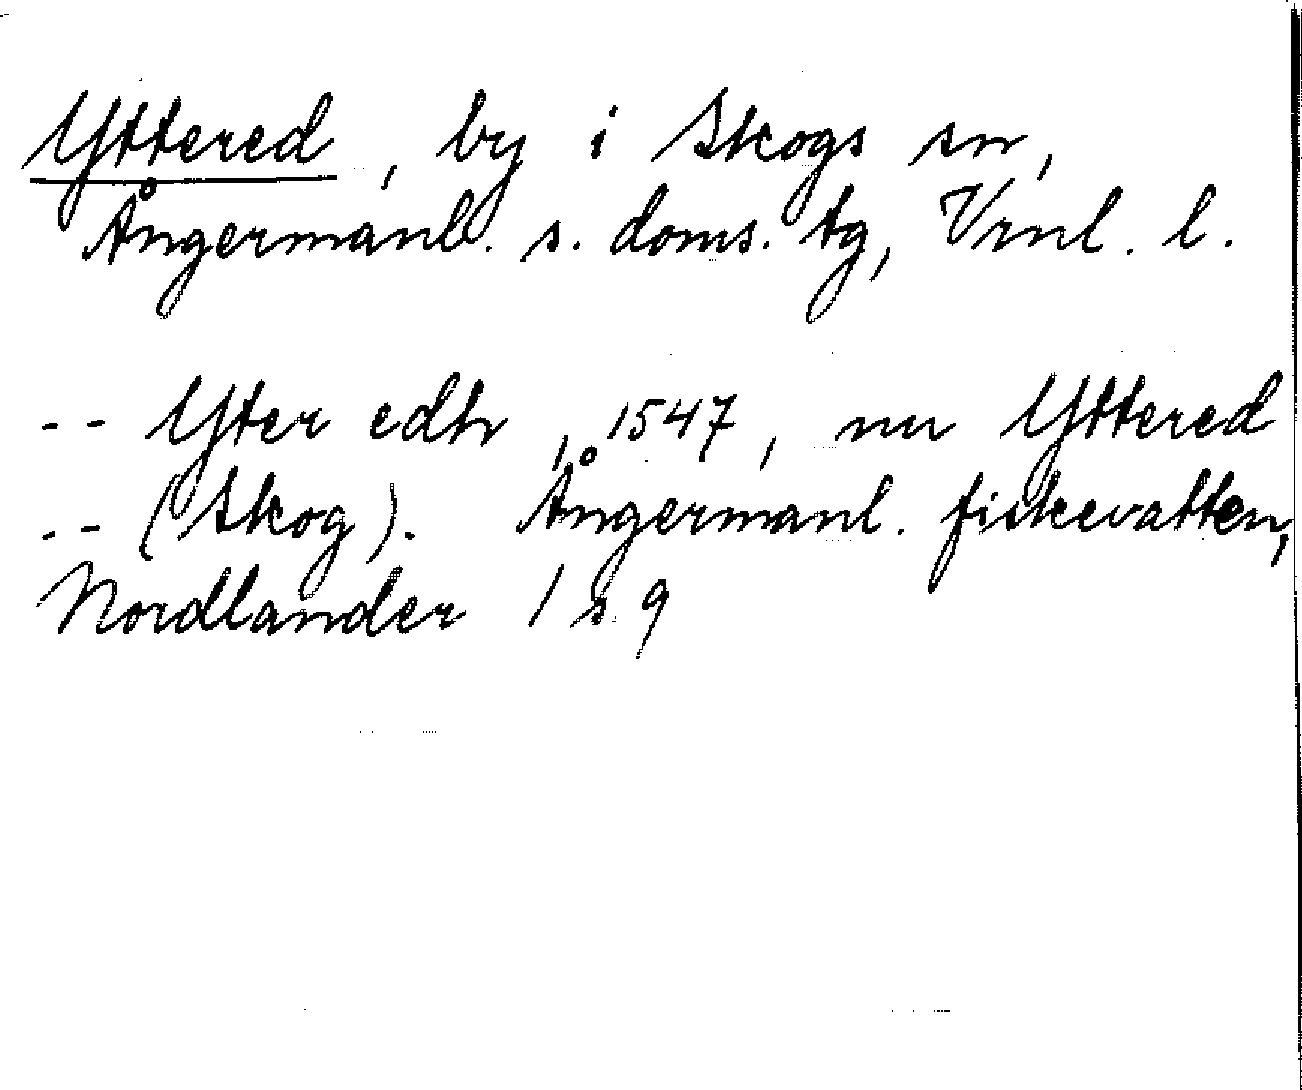 Yttered, by i Skogs sn,
Ångermanl. s. doms. tg, Vrnl. l.
-- Yter edh, 1547, nu Yttered
-- (Skog). Ångermanl. fiskevatten,
Nordlander 1 s 9